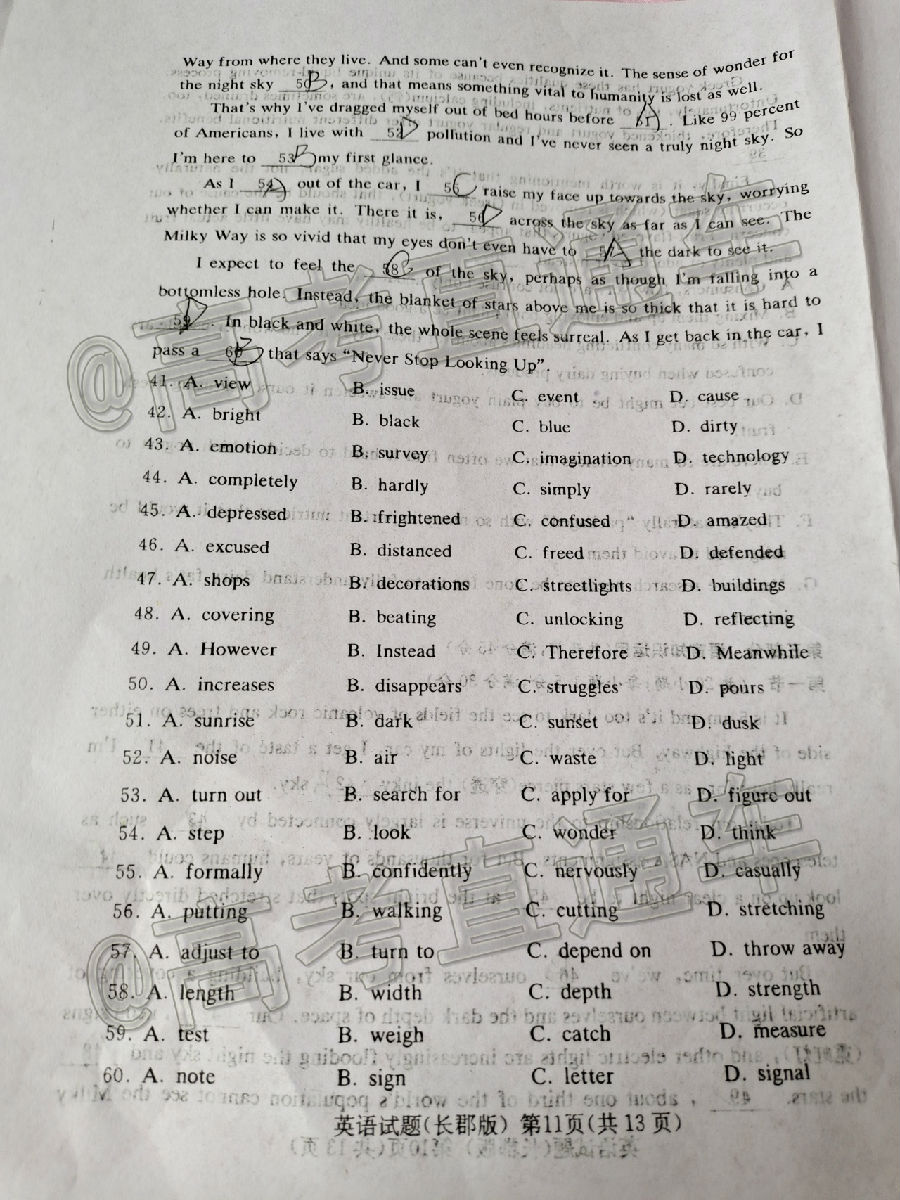 Way from where they live. And some can't even recognize it. The sense of wonder for
the night sky 50 B, and that means something vital to humanity is lost as well.
That's why I've dragged myself out of bed hours before A. Like 99 percent
of Americans, I live with 52 D pollution and I've never seen a truly night sky. So
I'm here to 53 B my first glance.
As I 54 A out of the car, I C raise my face up towards the sky, worrying
whether I can make it. There it is, D across the sky as far as I can see. The
Milky Way is so vivid that my eyes don't even have to A the dark to see it.
I expect to feel the 58 C of the sky, perhaps as though I'm falling into a
bottomless hole. Instead, the blanket of stars above me is so thick that it is hard to
59 D. In black and white, the whole scene feels surreal. As I get back in the car, I
pass a 60 B that says "Never Stop Looking Up".
41. A. view B. issue C. event D. cause
42. A. bright B. black C. blue D. dirty
43. A. emotion B. survey C. imagination D. technology
44. A. completely B. hardly C. simply D. rarely
45. A. depressed B. frightened C. confused D. amazed
46. A. excused B. distanced C. freed D. defended
47. A. shops B. decorations C. streetlights D. buildings
48. A. covering B. beating C. unlocking D. reflecting
49. A. However B. Instead C. Therefore D. Meanwhile
50. A. increases B. disappears C. struggles D. pours
51. A. sunrise B. dark C. sunset D. dusk
52. A. noise B. air C. waste D. light
53. A. turn out B. search for C. apply for D. figure out
54. A. step B. look C. wonder D. think
55. A. formally B. confidently C. nervously D. casually
56. A. putting B. walking C. cutting D. stretching
57. A. adjust to B. turn to C. depend on D. throw away
58. A. length B. width C. depth D. strength
59. A. test B. weigh C. catch D. measure
60. A. note B. sign C. letter D. signal
英语试题(长郡版) 第11页(共13页)
@高考直通车
@高考直通车